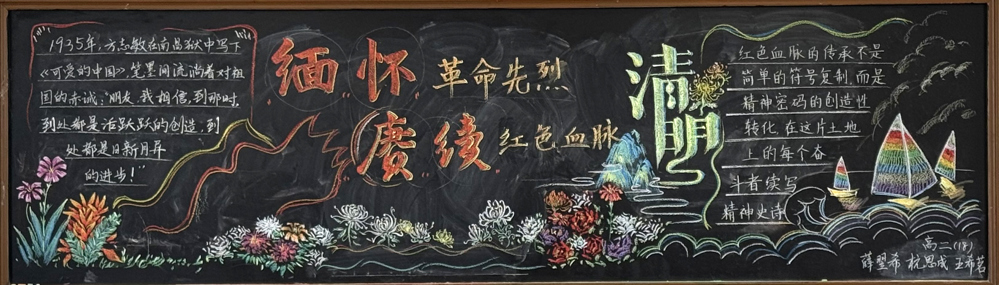 1935年，方志敏在南昌狱中写下
《可爱的中国》，笔墨间流淌着对祖
国的赤诚："朋友，我相信，到那时，
到处都是活跃跃的创造，到
处都是日新月异
的进步！"
缅怀革命先烈
赓续红色血脉
清明
红色血脉的传承不是
简单的符号复制，而是
精神密码的创造性
转化，在这片土地
上的每个奋
斗者续写
精神史诗
高二(18)
薛翌希 杭思成 王希茗